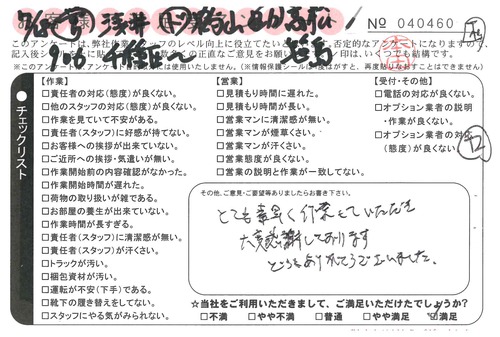 № 040460
このアンケートは、弊社
記入後シール
(※このアンケート
チェックリスト
【作業】
□責任者の対応(態度)が良くない。
□他のスタッフの対応(態度)が良くない。
□作業を見ていて不安がある。
□責任者(スタッフ)に好感が持てない。
□お客様への挨拶が出来ていない。
□ご近所への挨拶・気遣いが無い。
□作業開始前の内容確認がなかった。
□作業開始時間が遅れた。
□荷物の取り扱いが雑である。
□お部屋の養生が出来ていない。
□作業時間が長すぎる。
□責任者(スタッフ)に清潔感が無い。
□責任者(スタッフ)が汗くさい。
□トラックが汚い。
□梱包資材が汚い。
□運転が不安(下手)である。
□靴下の履き替えをしてない。
□スタッフにやる気がみられない。
【営業】
□見積もり時間に遅れた。
□見積もり時間が長い。
□営業マンに清潔感が無い。
□営業マンが煙草くさい。
□営業マンが汗くさい。
□営業態度が良くない。
□営業の説明と作業が一致してない。
【受付・その他】
□電話の対応が良くない。
□オプション業者の説明
・作業が良くない。
□オプション業者の対応
(態度)が良くない。
その他、ご意見・ご要望等ありましたらお書き下さい。
とても素早く作業していただき
大変感謝しております
どうもありがとうございました。
☆当社をご利用いただきまして、ご満足いただけたでしょうか?
□不満 □やや不満 □普通 □やや満足 □満足